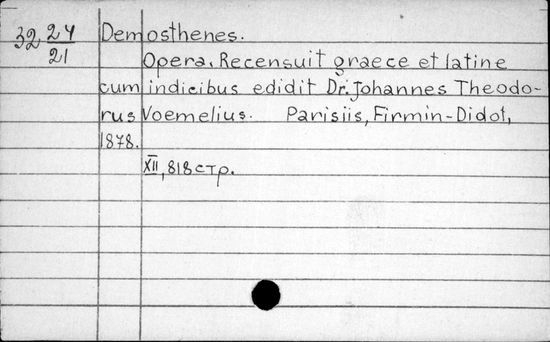 32 24/21 Demosthenes.
Opera. Recensuit graece et latine
cum indicibus edidit Dr. Johannes Theodo-
rus Voemelius. Parisiis, Firmin-Didot,
1878.
XII, 818 стр.